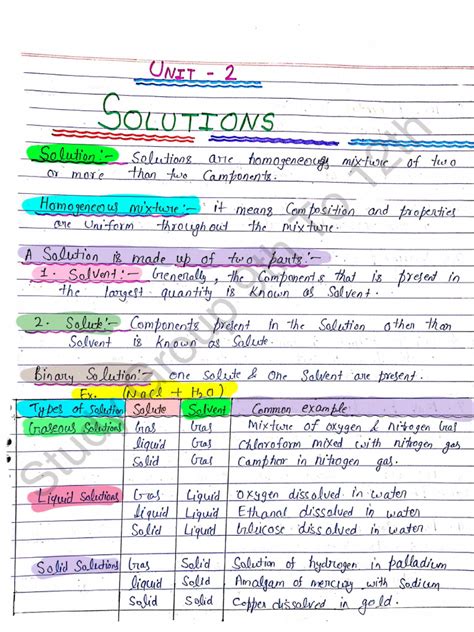 UNIT - 2
SOLUTIONS
Solution:- Solutions are homogeneous mixture of two
or more than two Components.
Homogeneous mixture:- it means Composition and properties
are uniform throughout the mixture.
A Solution is made up of two parts:-
1. Solvent:- Generally, the Components that is present in
the largest quantity is known as Solvent.
2. Solute:- Components present in the Solution other than
Solvent is Known as Solute.
Binary Solution:- one Solute & One Solvent are present.
Ex. (NaCl + H2O)
Types of solution Solute Solvent Common example
Gaseous Solutions Gas Gas Mixture of oxygen & nitrogen Gas
liquid Gas Chloroform mixed with nitrogen gas
Solid Gas Camphor in nitrogen gas.
Liquid Solutions Gas Liquid Oxygen dissolved in water
Liquid Liquid Ethanol dissolved in water
Solid Liquid Glucose dissolved in water
Solid Solutions Gas Solid Solution of hydrogen in palladium
liquid Solid Amalgam of mercury with Sodium
Solid Solid Copper dissolved in gold.
Study Group 9th To 12th